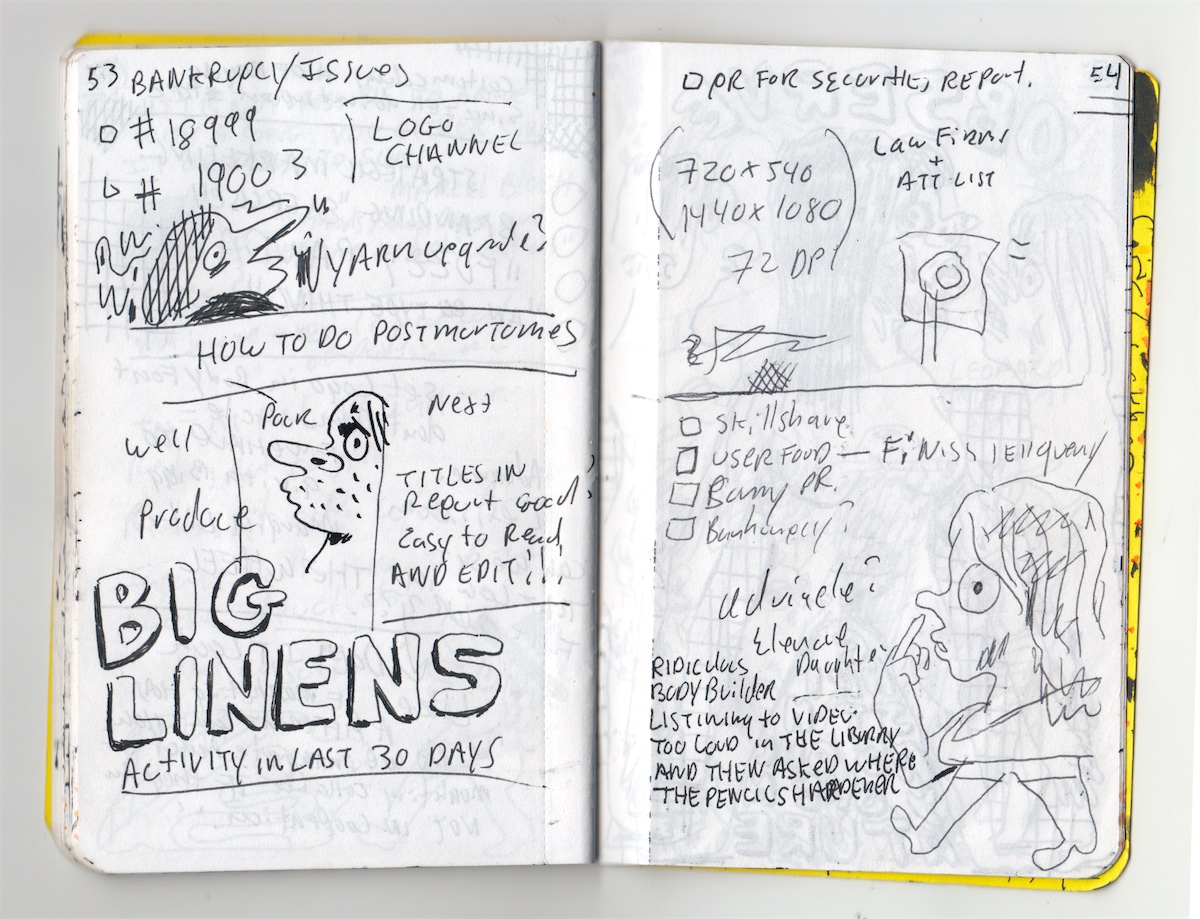 53 BANKRUPCY/ISSUES
# 18999
# 19003
LOGO
CHANNEL
YARN upgrade?
HOW TO DO POSTMORTOMES
well
Poor
Next
Produce
TITLES IN
Report Good
Easy to Read
AND EDIT!!!
BIG
LINENS
ACTIVITY IN LAST 30 DAYS
PR FOR SECURITIE, REPORT.
54
720 x 540
1440 x 1080
72 DPI
Law Firms
+
ATT LIST
=
Skillshare
USER FOOD — FINISH
PR.
RIDICULUS
BODY Builder
LISTINING to VIDEO
TOO LOUD in THE LIBURRY
AND THEN ASKED WHERE
THE PENCIL SHARPENER
Daughter